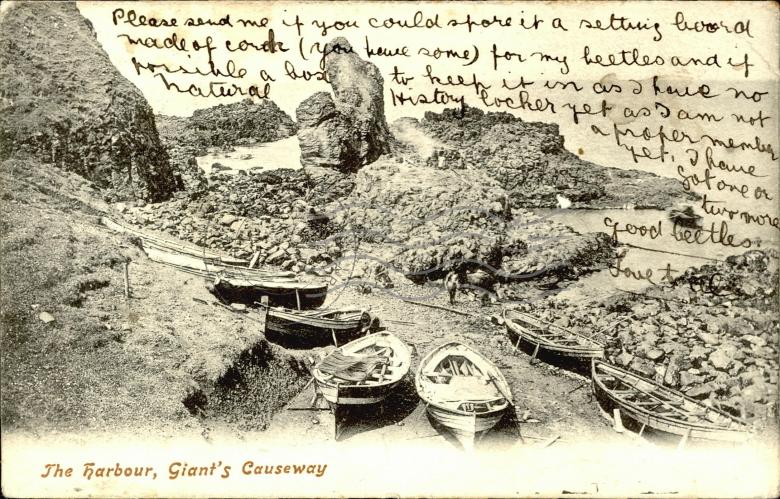 Please send me if you could spare it a setting board
made of cork (you have some) for my beetles and if
possible a box to keep it in as I have no
Natural History locker yet as I am not
a proper member
yet. I have
got one or
two more
good beetles.
Love to all
The Harbour, Giant's Causeway